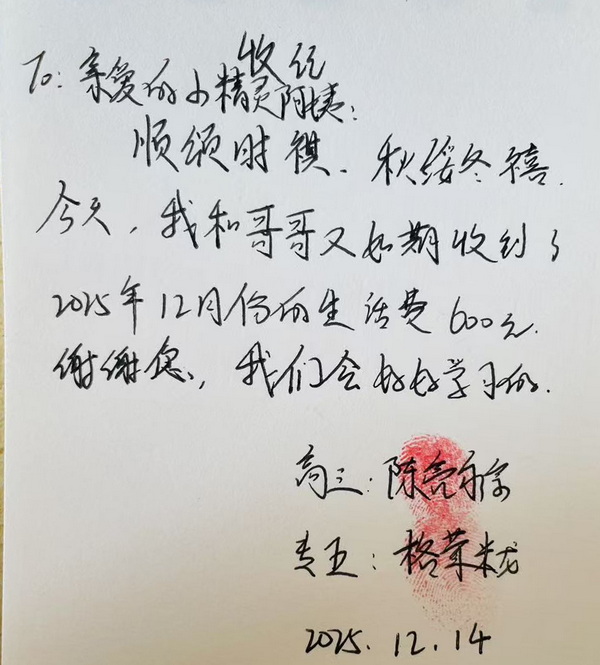 收纥
To: 亲爱的小精灵阿姨:
顺颂时祺、秋绥冬禧.
今天,我和哥哥又如期收到了
2025年12月份的生活费600元.
谢谢您,我们会好好学习的.
高三:陈亮
专五:格茸
2025.12.14